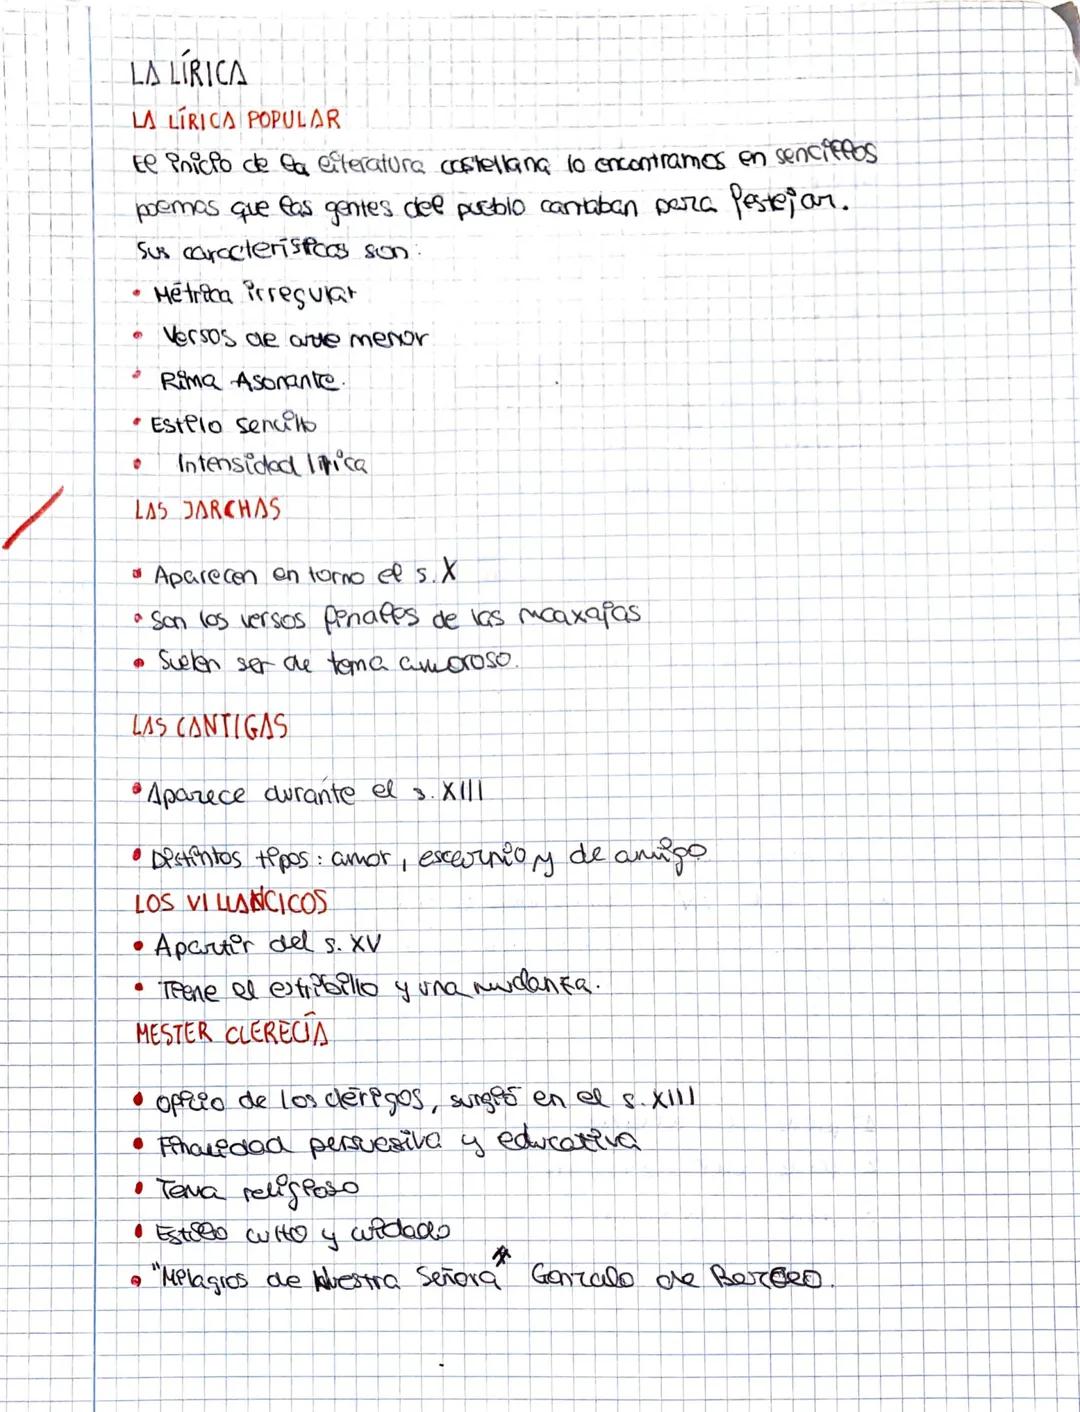 LA LÍRICA
LA LÍRICA POPULAR
El inicio de la literatura castellana lo encontramos en sencillos
poemas que las gentes del pueblo cantaban para festejar.
Sus características son:
• Métrica irregular
• Versos de arte menor
• Rima Asonante.
• Estilo sencillo
• Intensidad lírica
LAS JARCHAS
• Aparecen en torno el s. X
• Son los versos finales de las moaxajas
• Suelen ser de tema amoroso.
LAS CANTIGAS
• Aparece durante el s. XIII
• Distintos tipos: amor, escarnio y de amigo
LOS VILLANCICOS
• Apartir del s. XV
• Tiene el estribillo y una mudanza.
MESTER CLERECÍA
• oficio de los clérigos, surgió en el s. XIII
• Finalidad persuasiva y educativa
• Tema religioso
• Estilo culto y cuidado
• "Milagros de Nuestra Señora" * Gonzalo de Berceo.